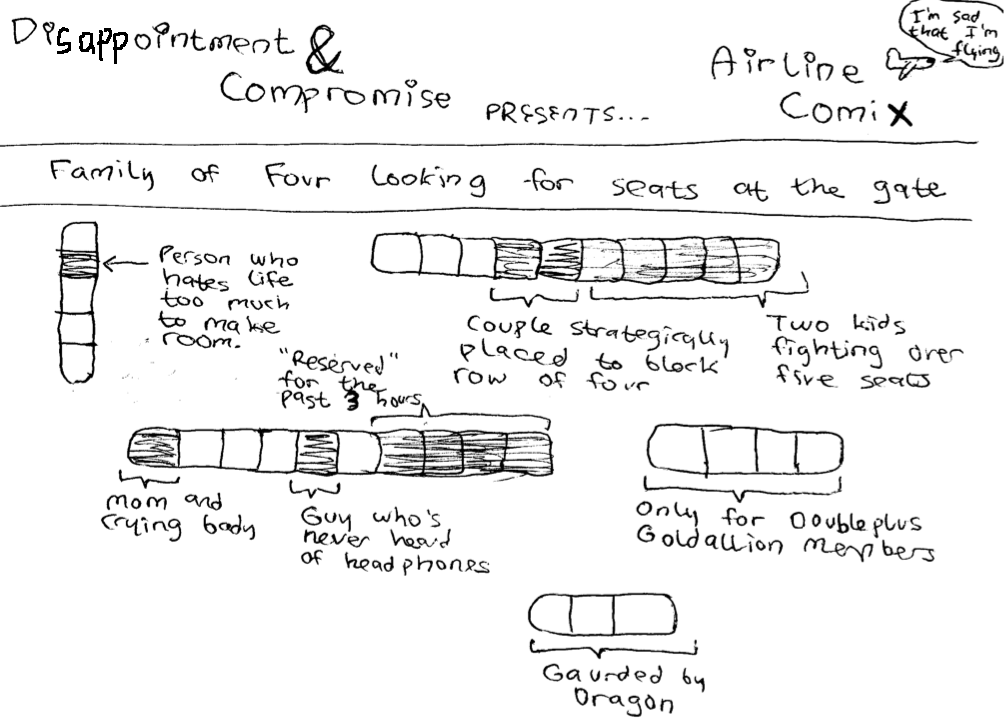 Disappointment &
Compromise PRESENTS...
Airline
Comix
I'm sad
that I'm
flying
Family of Four looking for seats at the gate
Person who
hates life
too much
to make
room.
Couple strategically
placed to block
row of four
Two kids
fighting over
five seats
"Reserved"
for the
past 3 hours
Mom and
crying baby
Guy who's
never heard
of headphones
Only for Doubleplus
Goldallion members
Gaurded by
Dragon